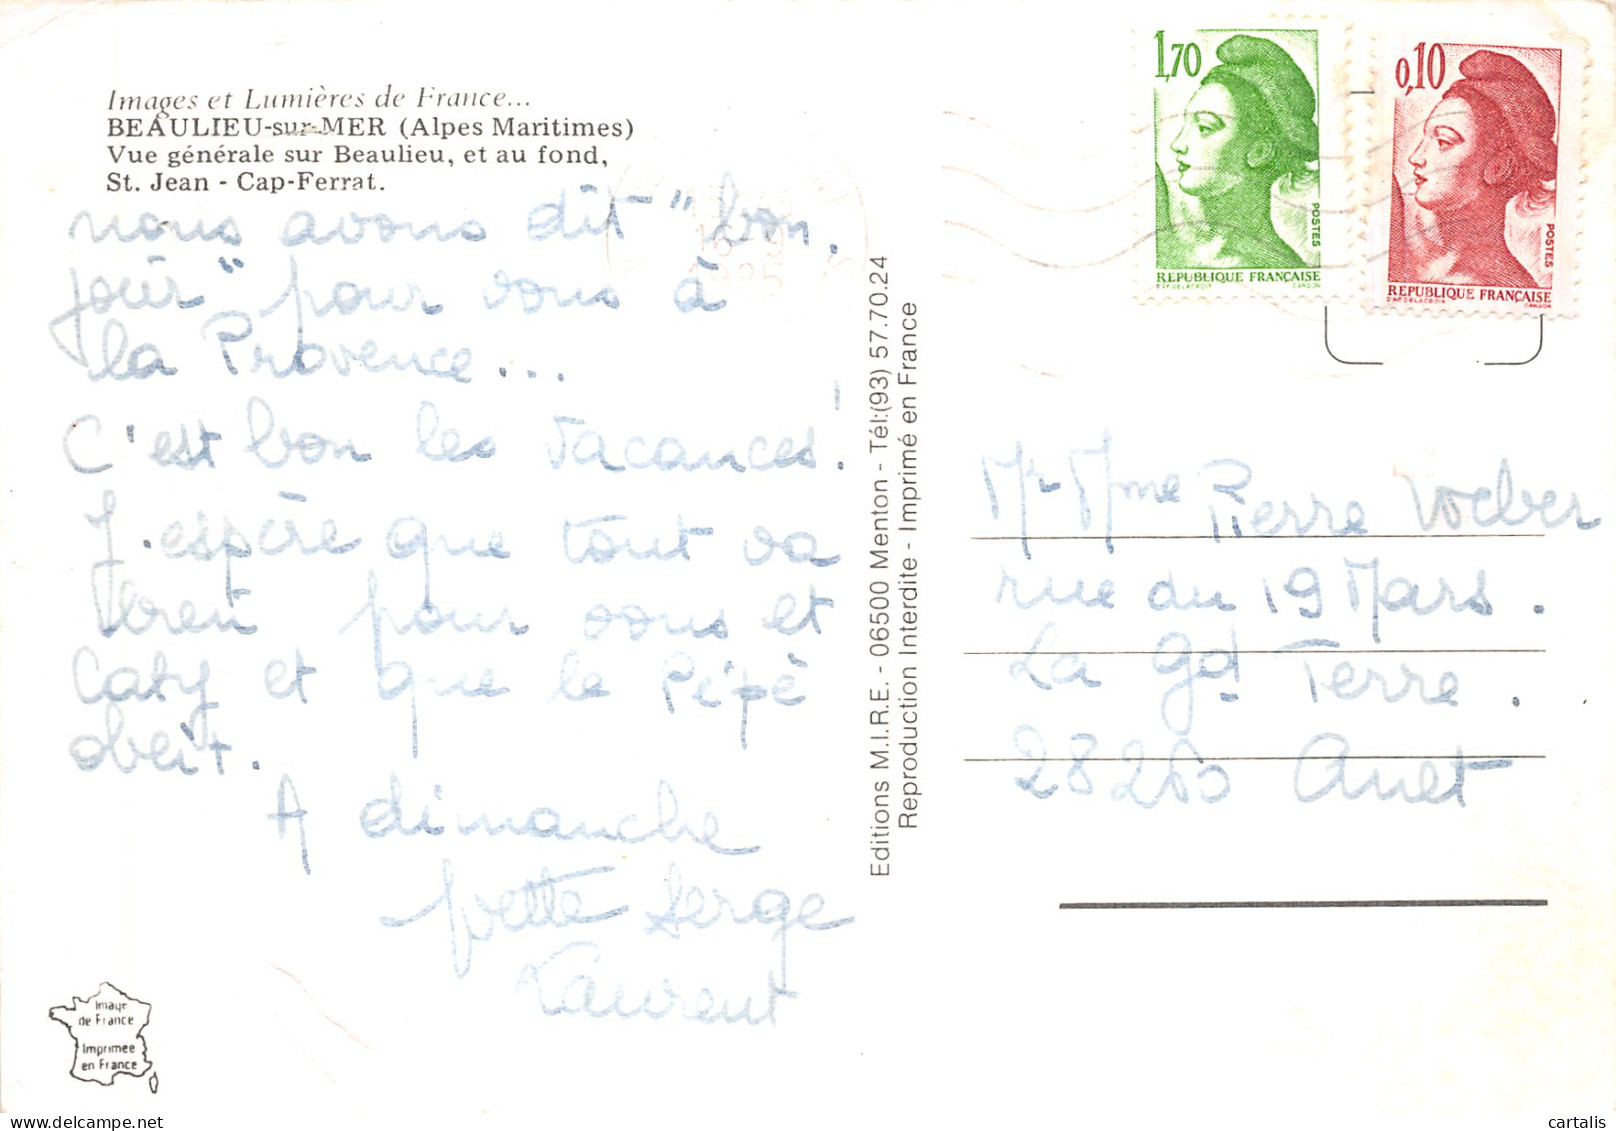 Images et Lumières de France...
BEAULIEU-sur-MER (Alpes Maritimes)
Vue générale sur Beaulieu, et au fond,
St. Jean - Cap-Ferrat.
nous avons dit "bon.
jour" pour vous à
la Provence...
C'est bon les vacances!
J.espère que tout va
bien pour vous et
Caty et que le Pépé
obeit.
A dimanche
Yvette Serge
Laurent
Image
de France
Imprimee
en France
Editions M.I.R.E. - 06500 Menton - Tél:(93) 57.70.24
Reproduction Interdite - Imprimé en France
1,70
POSTES
REPUBLIQUE FRANÇAISE
D'AP DELACROIX GANDON
0,10
POSTES
REPUBLIQUE FRANÇAISE
D'AP DELACROIX GANDON
Mr Mme Pierre Weber
rue du 19 Mars.
La gd Terre.
28260 Anet
cartalis